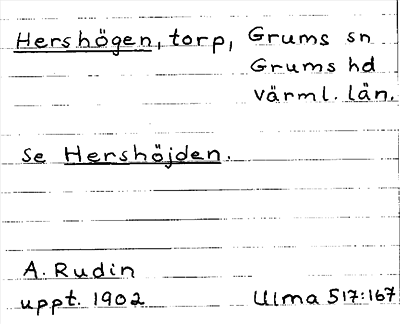 Hershögen, torp, Grums sn
Grums hd
värml. län.
Se Hershöjden.
A. Rudin
uppt. 1902 Ulma 517:167